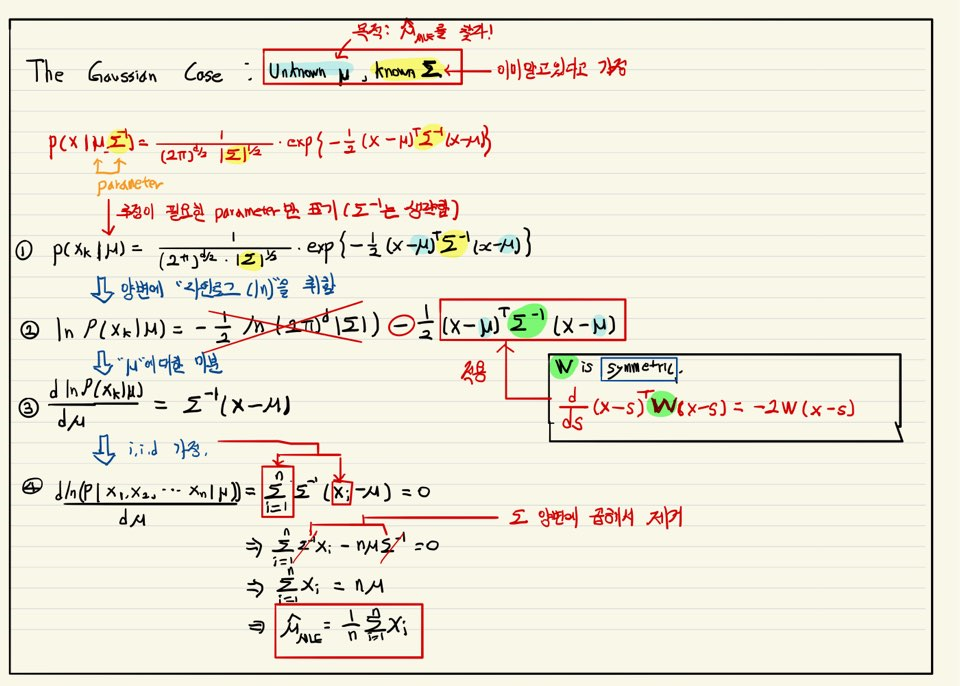 목적: μ̂_MLE를 찾자!
The Gaussian Case : Unknown μ, known Σ ← 이미 알고있다고 가정
p(x|μ,Σ⁻¹) = 1/((2π)^{d/2} |Σ|^{1/2}) · exp{-1/2 (x-μ)ᵀΣ⁻¹(x-μ)}
parameter
추정이 필요한 parameter만 표기 (Σ⁻¹는 생략함)
① p(x_k|μ) = 1/((2π)^{d/2} · |Σ|^{1/2}) · exp{-1/2 (x-μ)ᵀΣ⁻¹(x-μ)}
양변에 "자연로그 (ln)"을 취함
② ln P(x_k|μ) = -1/2 ln(2π)^d |Σ|) - 1/2 (x-μ)ᵀΣ⁻¹(x-μ)
"μ"에 대한 미분
적용
W is symmetric.
d/ds (x-s)ᵀW(x-s) = -2W(x-s)
③ d ln P(x_k|μ)/dμ = Σ⁻¹(x-μ)
i.i.d 가정.
④ d ln(P|x₁,x₂, ⋯ x_n|μ))/dμ = Σ_{i=1}^{n} Σ⁻¹(x_i-μ) = 0
Σ 양변에 곱해서 제거
⇒ Σ_{i=1}^{n} Σ⁻¹x_i - nμΣ⁻¹ = 0
⇒ Σ_{i=1}^{n} x_i = nμ
⇒ μ̂_MLE = 1/n Σ_{i=1}^{n} x_i